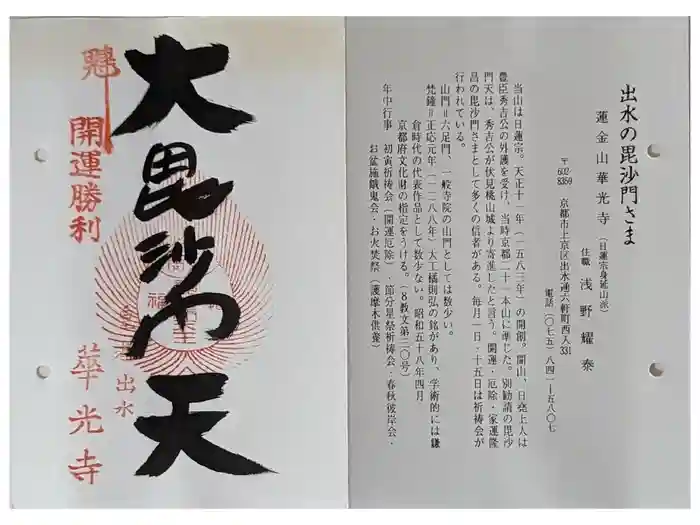 出水の毘沙門さま
蓮金山華光寺（日蓮宗身延山派）
住職 浅野耀泰
〒602-8359 京都市上京区出水通六軒町西入331
電話（〇七五）八四一ー五八〇七
当山は日蓮宗。天正十一年（一五八三年）の開創。開山、日堯上人は
豊臣秀吉公の外護を受け、当時京都二十一本山に準じた。別勧請の毘沙
門天は、秀吉公が伏見桃山城より寄進したと言う。開運・厄除・家運隆
昌の毘沙門さまとして多くの信者がある。毎月一日・十五日は祈祷会が
行われている。
山門＝六足門、一般寺院の山門としては数少い。
梵鐘＝正応元年（一二八八年）大工橘則弘の銘があり、学術的には鎌
倉時代の代表作品として数少ない。昭和五十八年四月
京都府文化財の指定をうける。（8教文第二〇号）
年中行事 初寅祈祷会（開運厄除）・節分星祭祈祷会・春秋彼岸会・
お盆施餓鬼会・お火焚祭（護摩木供養）
大毘沙門天
開運勝利
出水
華光寺